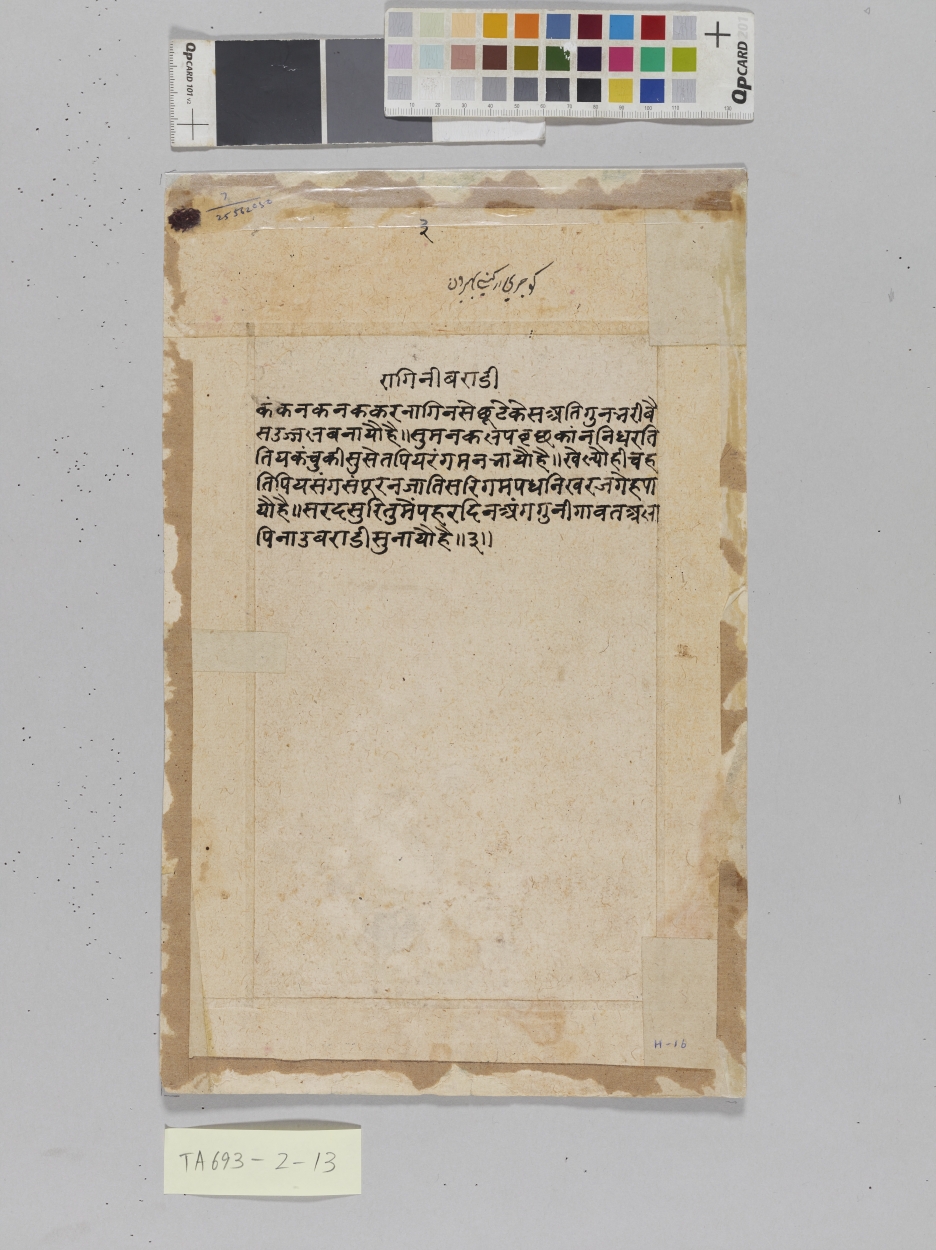 QpCARD 101 v3
QpCARD 201
10 20 30 40 50 60 70 80 90 100 110 130
३
रागिनीबराडी
कंकनकनककरनागिनसेछूटेकेसअतिगुनभरीबै
सउज्जलबनायौहै॥सुमनकलपबृछकांननिधरति
तियकंचुकीसुसेतपियरंगमनभायौहै॥खेल्यौहीचह
तिपियसंगसंपूरनजातिसरिगमपधनिखरजगेहपा
यौहै॥सरदसुरितुमैंपहरदिनअंगगुनीगावतअला
पिनाउबराडीसुनायौहै॥३॥
H-16
TA693-2-13